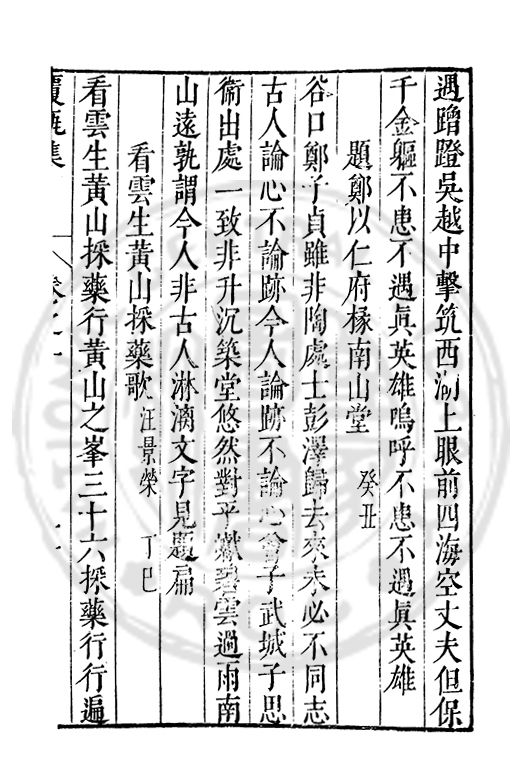 遇蹭蹬吳越中擊筑西湖上眼前四海空丈夫但保
千金軀不患不遇眞英雄嗚呼不患不遇眞英雄
題鄭以仁府椽南山堂　癸丑
谷口鄭子貞雖非陶處士彭澤歸去來未必不同志
古人論心不論跡今人論跡不論心曾子武城子思
衛出處一致非升沉築堂悠然對平巘碧雲過雨南
山遠孰謂今人非古人淋漓文字見題扁
看雲生黃山採藥歌 汪景榮　丁巳
看雲生黃山採藥行黃山之峯三十六採藥行行遍
覆瓿集　卷之一